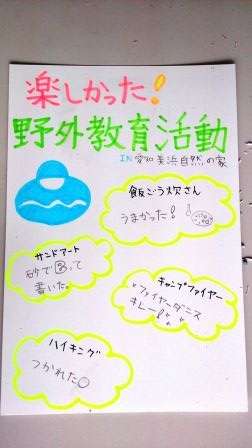 楽しかった!
野外教育活動
IN 愛知美浜自然の家
飯ごう炊さん
うまかった!
サンドアート
砂で
って
書いた。
キャンプファイヤー
ファイヤーダンス
キレー!
ハイキング
つかれた〇